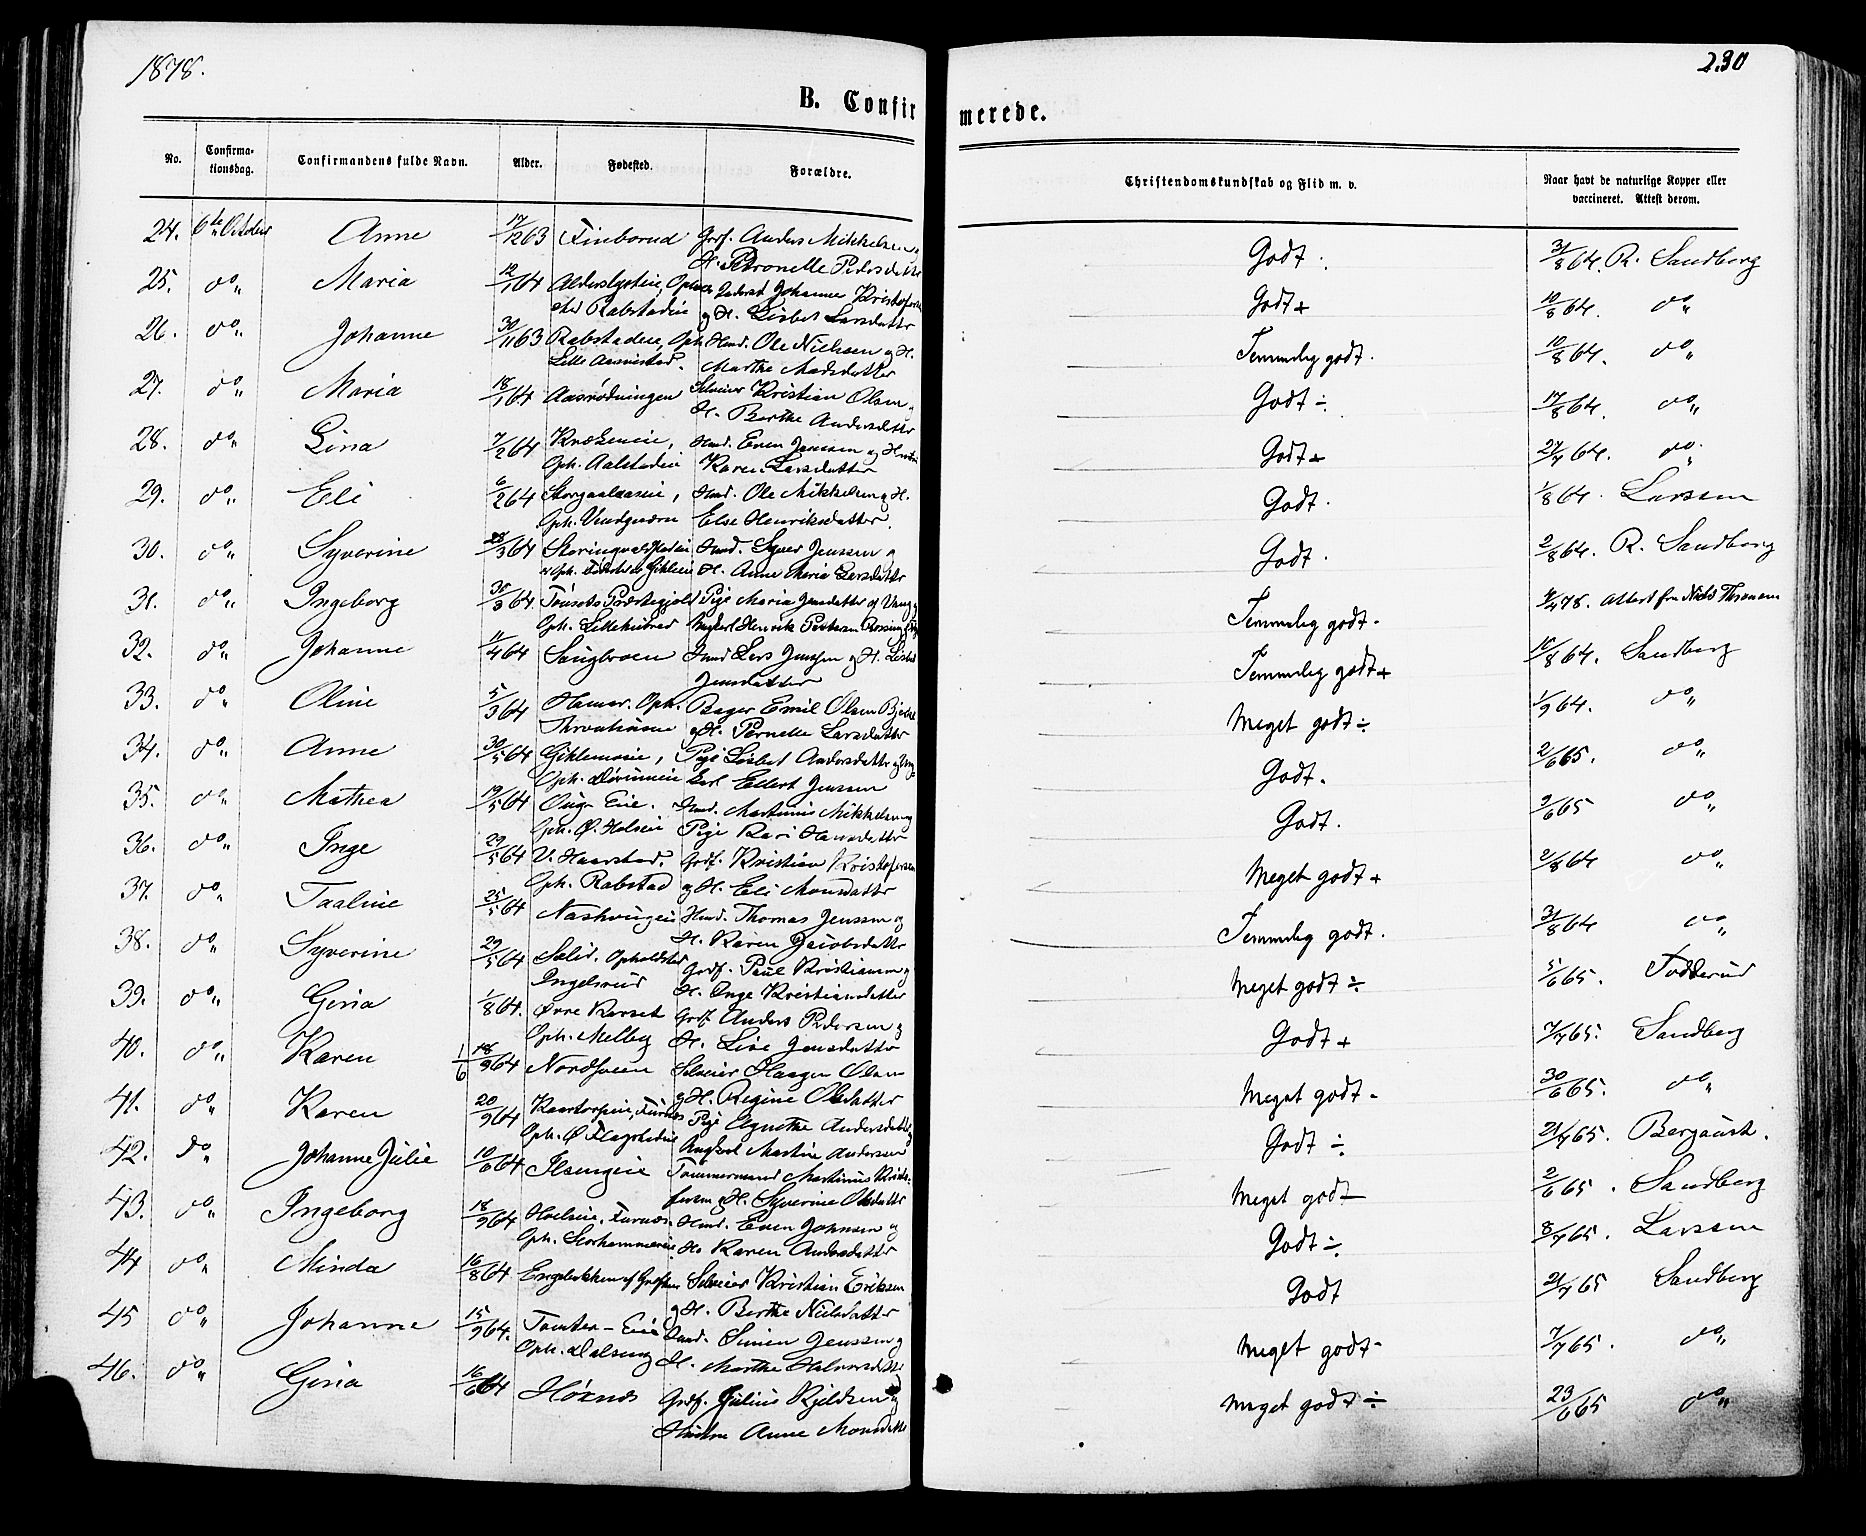 1878.
230
B. Confirmerede.
No. Confirmationsdag. Confirmandens fulde Navn. Alder. Fødested. Forældre. Christendomskundskab og Flid m. v. Naar havt de naturlige Kopper eller vaccineret. Attest derom.
24. 6te October Anne 17/12 63 Finborud Grdf. Anders Mikkelsen H. Petronelle Pedersdatter Godt. 31/8 64. R. Sandberg
25. do Maria 12/1 64 Alderslysteie, Opholdssted Rabstadeie Inderst Johannes Kristofersen og H. Lisbet Larsdatter Godt + 10/8 64. do
26. do Johanne 30/11 63 Rabstadeie, Oph. Lille Aarnestad. Husm. Ole Nielsen og H. Marthe Madsdatter Temmelig godt. 10/8 64. do
27. do Maria 18/1 64 Aasrødningen Selveier Kristian Olsen H. Berthe Andersdatter Godt ÷ 17/8 64. do
28. do Lina 7/2 64 Oph. Aalstadeie Husm. Even Jensen og Hustru Karen Larsdatter Godt + 27/4 64. do
29. do Eli 6/2 64 Oph. Husm. Ole Mikkelsen og H. Else Henriksdatter. Godt. 1/8 64. Larssen
30. do Syverine 28/3 64 Husm. Syver Jenssen og H. Anne Maria Larsdatter Godt. 2/8 64. R. Sandberg
31. do Ingeborg 30/3 64 Tønsets Præstegjeld Oph. Pige Maria Jensdatter af Vang og Ungkarl Henrik Pettersen Temmelig godt - 4/4 78. Attest fra Niels
32. do Johanne 11/4 64 Sangbroen Husm. Lars Jenssen og H. Lisbet Jensdatter Temmelig godt + 10/8 64. Sandberg
33. do Oline 5/3 64 Hamar. Oph. Bager Emil Olsen og H. Pernelle Larsdatter Meget godt ÷ 1/9 64. do
34. do Anne 30/5 64 Gihlemoeie, Oph. Pige Lisbet Andersdatter og Ungkarl Ellert Jenssen Godt. 2/6 65. do
35. do Mathea 19/5 64 Eie. Oph. Ø. Holseie Husm. Martinus Mikkelsen og Pige Kari Hansdatter Godt. 2/6 65 do
36. do Inge 29/5 64 V. Haarstad. Oph. Rabstad Grdf. Kristian Kristofersen og H. Eli Monsdatter Meget godt + 2/8 64 do
37. do Taaline 25/5 64 Husm. Thomas Jenssen og H. Karen Jacobsdatter Temmelig godt. 31/8 64 do
38. do Syverine 29/5 64 Opholdsted Ingelsrud Grdf. Paul Kristiansen og H. Inge Kristiansdatter Meget godt ÷ 5/6 65. Fodderud
39. do Gina 1/8 64. Øvre Oph. Melby Grdf. Anders Pedersen og H. Lise Jensdatter Godt + 7/7 65. Sandberg
40. do Karen 1/6 18/9 64 Nordsveen Selveier Haagen Olsen og H. Regine Olsdatter Meget godt - 30/6 65. do
41. do Karen 20/9 64 Furnæs Oph. Ø. Flagstadeie Pige Agnethe Andersdatter og Ungkarl Martin Andersen Godt ÷ 21/7 65. Bergaust.
42. do Johanne Julie 10/6 64 Ilsengeie Tømmermand Martinus Kristofersen og H. Syverine Olsdatter Meget godt - 2/6 65. Sandberg
43. do Ingeborg 18/9 64 Hvelseie, Furnæs. Oph. Storhammereie Husm. Even Johnsen og H. Karen Andersdatter Godt ÷ 8/7 65. Larssen
44 do Minda 16/8 64 Engelikken af Selveier Kristian Eriksen og H. Berthe Nielsdatter Godt 21/7 65 Sandberg
45 do Johanne 15/9 64. Tomten-Eie Oph. Dalseng Husm. Simen Jenssen og H. Marthe Halvorsdatter Meget godt - 7/7 65. do
46. do Gina 16/6 64 Høxnes Grdf. Julius Kjeldsen og Hustru Anne Monsdatter Meget godt ÷ 23/6 65 do